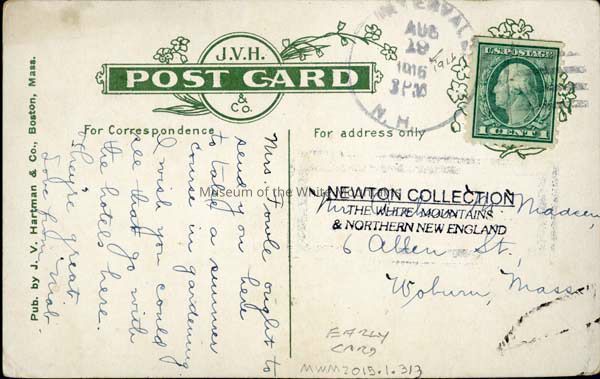 Pub. by J. V. Hartman & Co., Boston, Mass.
J.V.H.
POST CARD
& CO.
For Correspondence
For address only
INTERVALE
AUG
1916
N.H.
1916
U.S. POSTAGE
1 CENT 1
Mrs Towle ought to
send you up here
to take a summer
course in gardening
I wish you could
see that go with
the hotels here.
They're great.
Love from Mab.
Museum of the White Mountains
NEWTON COLLECTION
THE WHITE MOUNTAINS
& NORTHERN NEW ENGLAND
6 Allen St,
Woburn, Mass.
EARLY
CARD
MWM2015.1.313